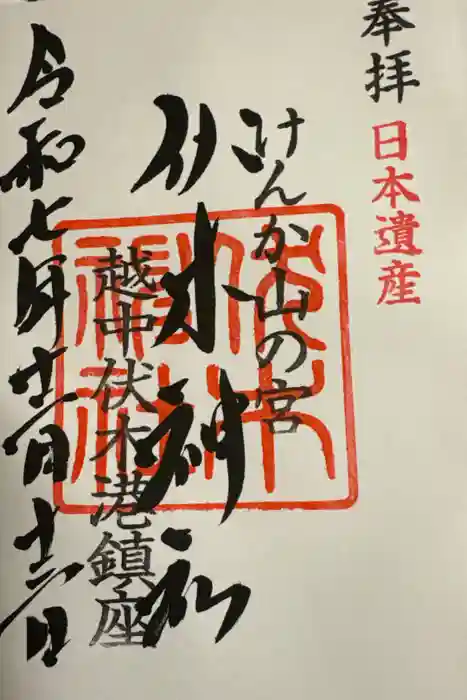 奉拝
日本遺産
けんか山の宮
伏木神社
伏木神社
越中伏木港鎮座
令和七年十二月十二日